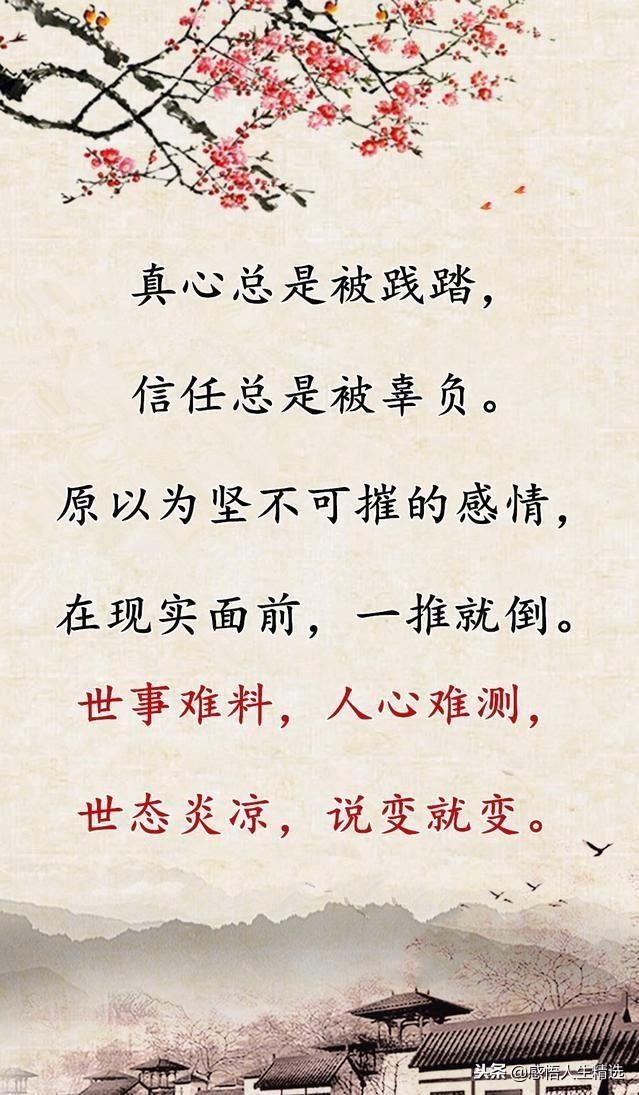 真心总是被践踏，
信任总是被辜负。
原以为坚不可摧的感情，
在现实面前，一推就倒。
世事难料，人心难测，
世态炎凉，说变就变。
头条 @感悟人生精选